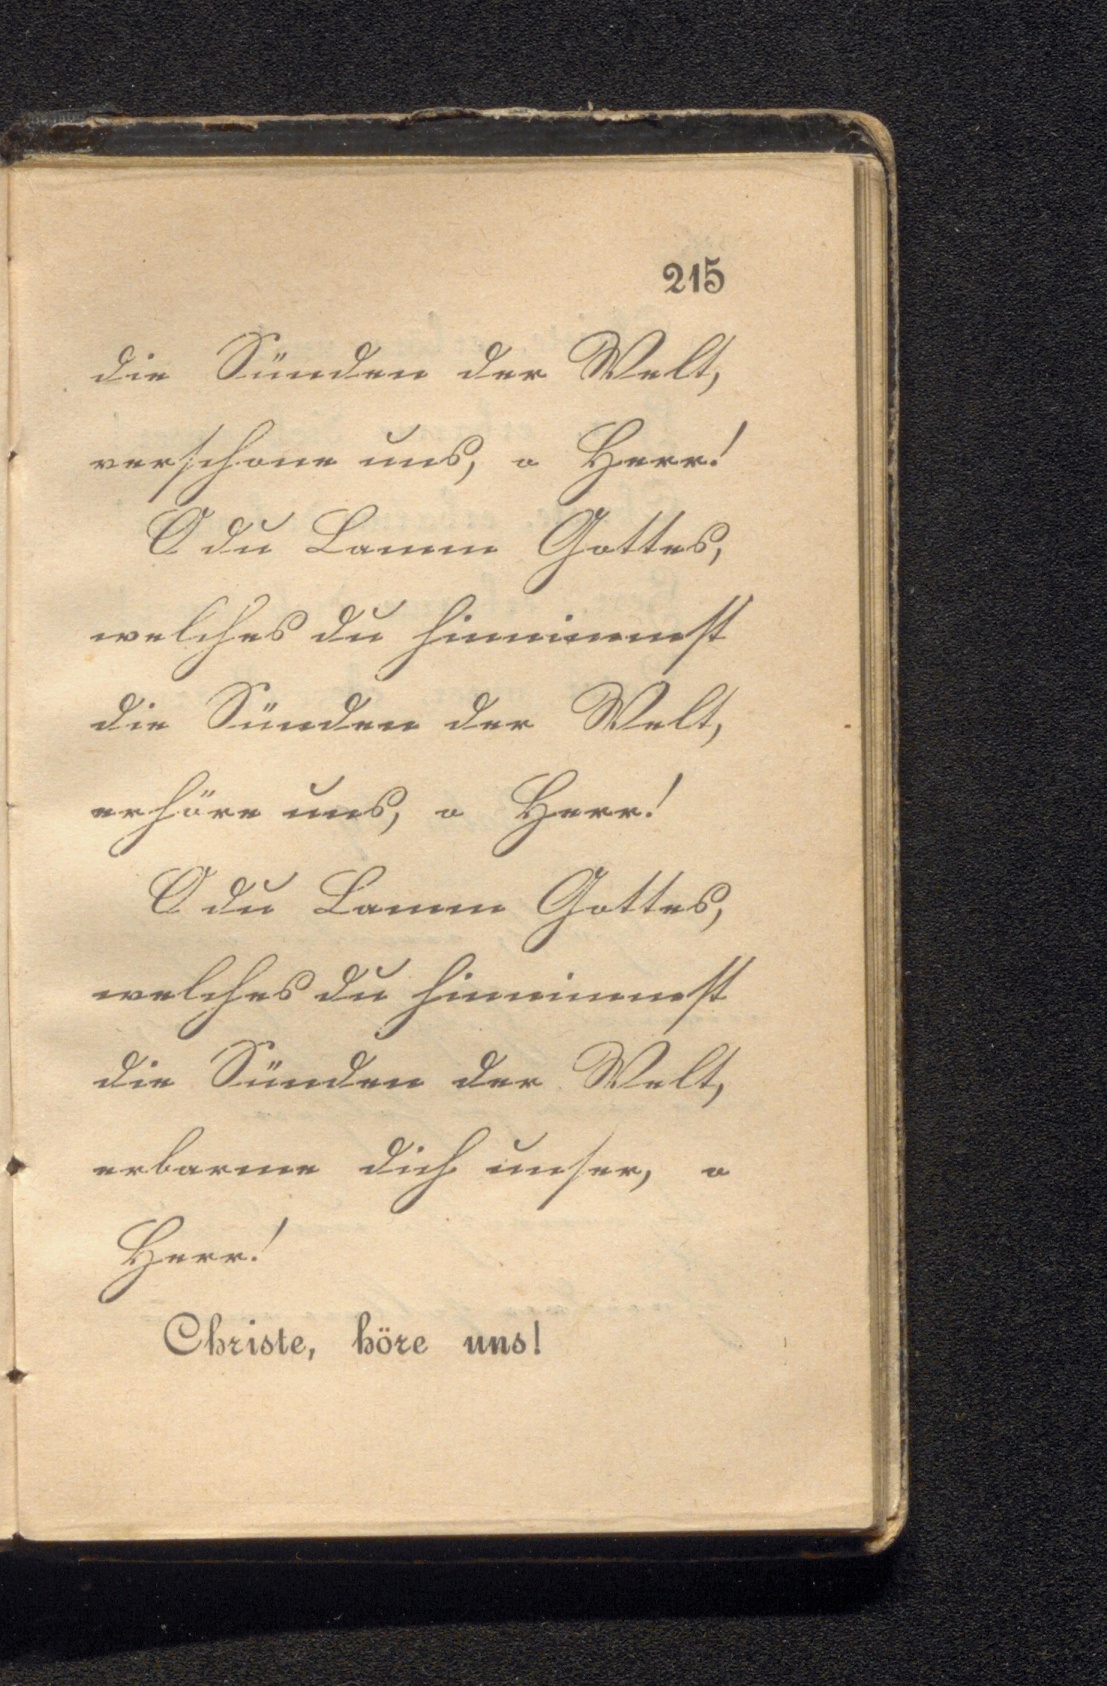 215
die Sünden der Welt,
verschone uns, o Herr!
O du Lamm Gottes,
welches du hinnimmst
die Sünden der Welt,
erhöre uns, o Herr!
O du Lamm Gottes,
welches du hinnimmst
die Sünden der Welt,
erbarme dich unser, o
Herr!
Christe, höre uns!